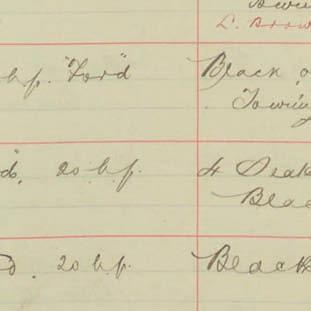 L. Brow
h.p. "Ford" Black
Towin
20 h.p. 4 Seat
Blac
20 h.p. Black